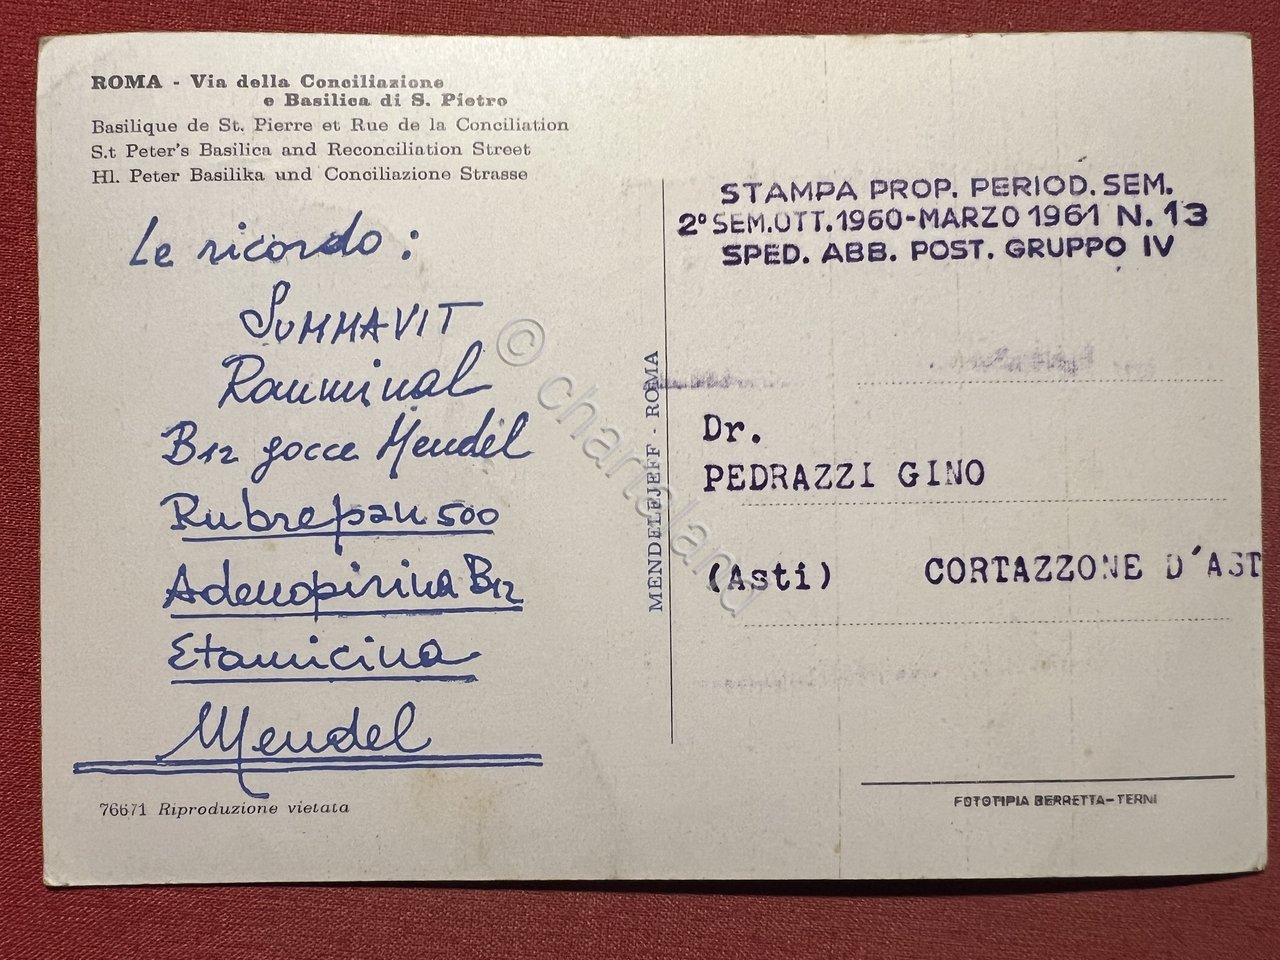 ROMA - Via della Conciliazione
e Basilica di S. Pietro
Basilique de St. Pierre et Rue de la Conciliation
S.t Peter's Basilica and Reconciliation Street
Hl. Peter Basilika und Conciliazione Strasse
Le ricordo:
SUMMAVIT
Ranminal
B12 gocce Mendel
Rubrepan 500
Adenopirina B12
Etamicina
Mendel
76671 Riproduzione vietata
MENDELEJEFF - ROMA
STAMPA PROP. PERIOD. SEM.
2° SEM.OTT.1960-MARZO 1961 N. 13
SPED. ABB. POST. GRUPPO IV
Dr.
PEDRAZZI GINO
(Asti) CORTAZZONE D'AST
FOTOTIPIA BERRETTA-TERNI
© chartaland